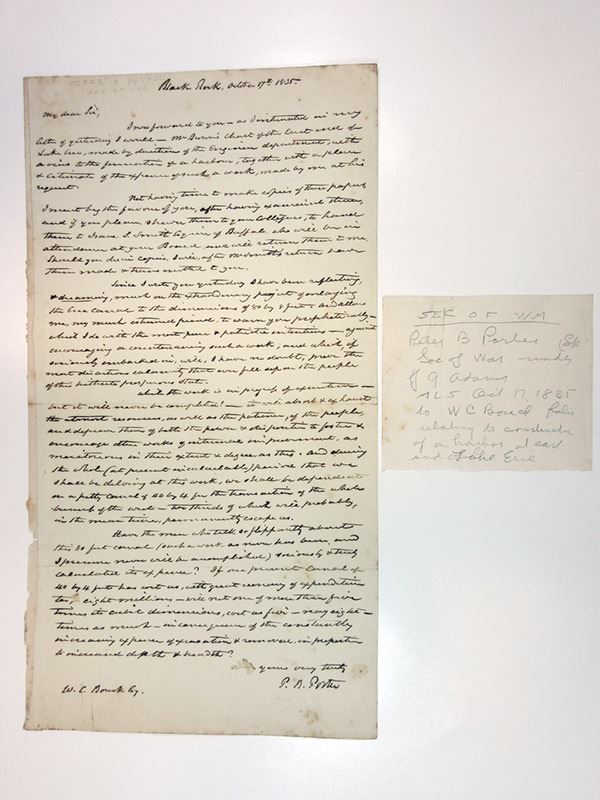 Black Rock, October 17th 1835.
My dear Sir,
I now forward to you – as I intimated in my
letter of yesterday I would – Mr chart of the East end of
Lake Erie, made by direction of the Engineer department, with
a view to the formation of a harbour, together with a plan
& estimate of the expense of such a work, made by me at his
request.
Not having time to make copies of these papers,
I must beg the favour of you, after having examined them,
and if you please, shewn them to your Colleagues, to hand
them to Isaac S. Smith Esquire of Buffalo, who will be in
attendance at your Board, and will return them to me.
Should you desire copies, I will, after Mr Smith's return have
them made & transmitted to you.
Since I wrote you yesterday I have been reflecting,
& dreaming, much on the extraordinary project of enlarging
the Erie Canal to the dimensions of 80 by 8 feet – and allow
me, my much esteemed friend, to warn you prophetically –
which I do with the most pure & patriotic intentions – against
encouraging or countenancing such a work, and which if
seriously embarked in, will, I have no doubt, prove the
most disastrous calamity that ever fell upon the people
of this hitherto prosperous State.
While the work is in progress of execution –
but it will never be completed – it will absorb & exhaust
the resources as well as the patience, of the people,
and deprive them of both the power & disposition to foster &
encourage other works of internal improvement, as
meritorious in their extent & degree as this. And during
the whole (at present incalculable) period that we
shall be delving at this work, we shall be dependent
on a petty canal of 40 by 4 for the transaction of the whole
business of the west – two thirds of which will probably,
in the mean time, permanently escape us.
Have the men who talk so flippantly about
this 80 feet canal (such a work as never has been, and
I presume never will be accomplished) seriously & truly
calculated its expense? If our present Canal of
40 by 4 feet has cost us, with great economy of expenditure
too, eight millions – will not one of more than five
times its cubic dimensions, cost us five – nay eight –
times as much – in consequence of the constantly
increasing expense of excavation & removal, in proportion
to increased depth & breadth?
yours very truly
P. B. Porter
W. C. Bouck Esq.
SEC OF WAR
Peter B Porter
Sec of War – under
J Q Adams
ALS Oct 17, 1835
to W C Bouck
relating to construction
of a harbor at east
end of Lake Erie